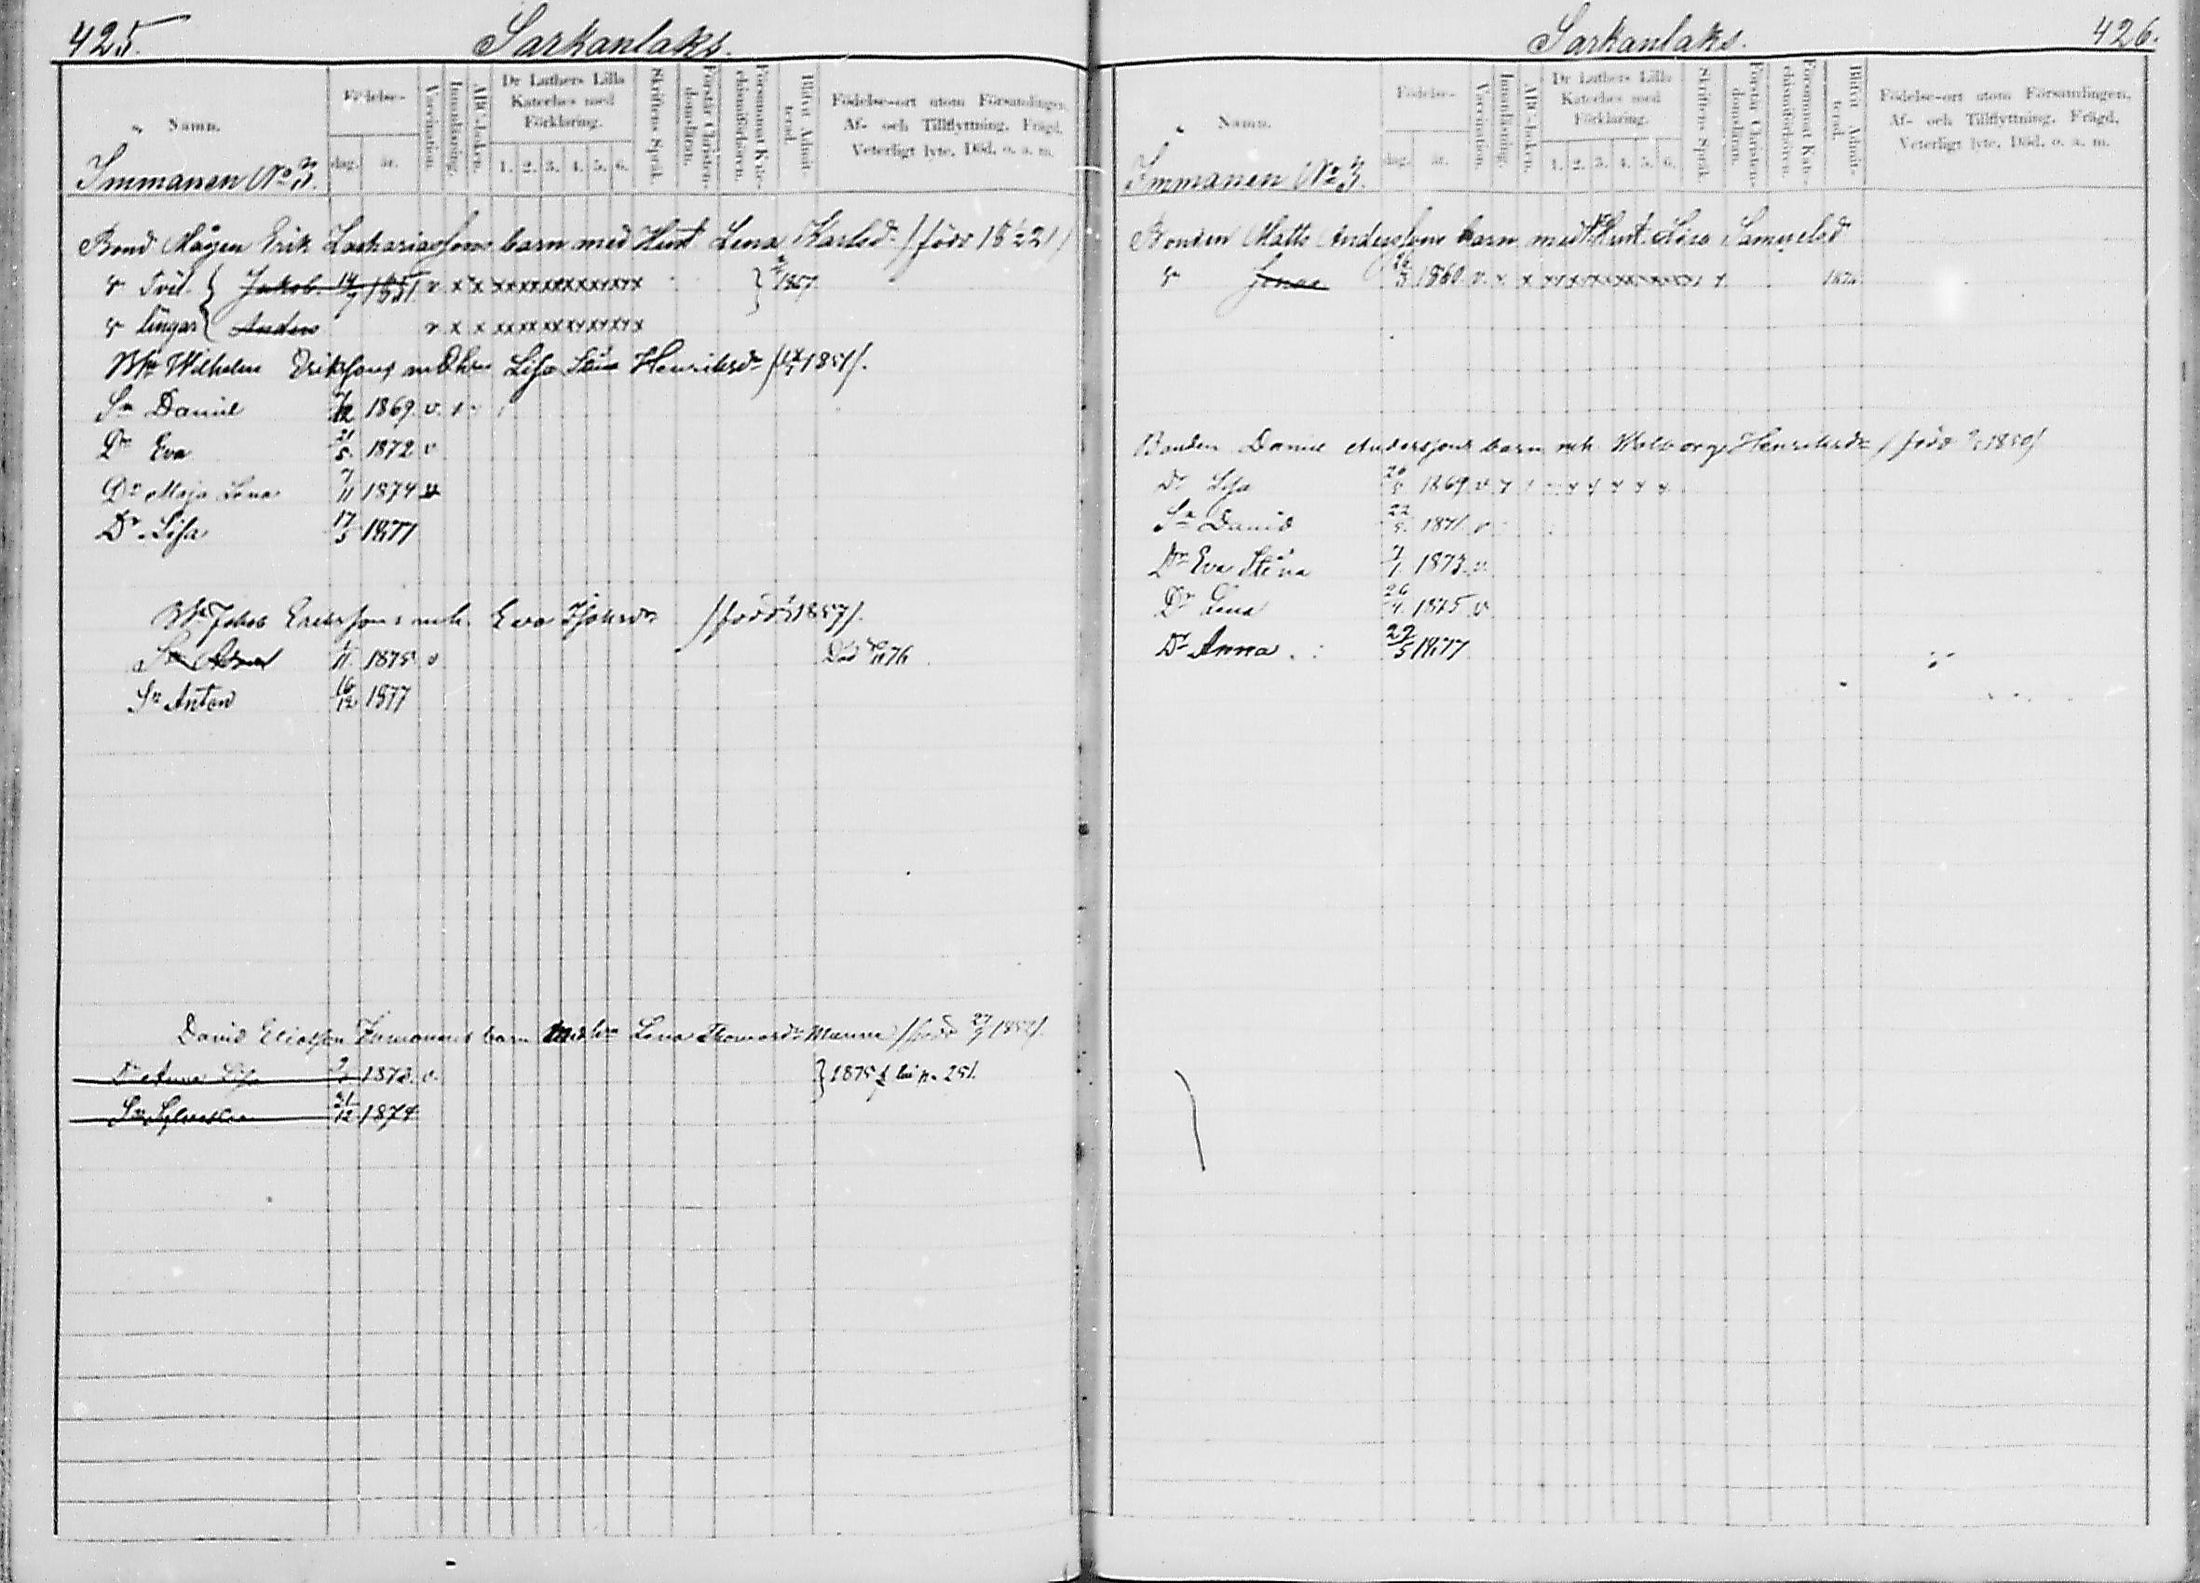 425.
Sarkanlaks.
Namn.
Födelse-
dag. år.
Vaccination.
Innanläsning.
ABC-boken.
Dr Luthers Lilla Kateches med Förklaring.
1. 2. 3. 4. 5. 6.
Skriftens Språk.
Förstår Christendomsläran.
Försummat Katechismiförhören.
Blifvit Admitterad.
Födelse-ort utom Församlingen,
Af- och Tillflyttning, Frägd,
Veterligt lyte, Död, o. a. m.
Immanen No 3.
Bond Mågen Erik Zachariassons barn med Hust Lena Karlsd. /född 1822/
Tvil- { Jakob 14/7 1851 v x x xxxxxxxxxxxx } 1867
lingar { Anders v x x xxxxxxxxxxxx
Wilhelm Erikssons m Hu Lisa Stina Henriksdr 1851/.
Sn Daniel 1869 v
Dr Eva 21/5 1872 v
Dr Maja Lena 7/11 1874 v
Dr Lisa 17/5 1877
Jakob Erikssons m h. Eva /född 1857/.
Sn 1875 v Död 76
Sn Anton 16/12 1877
David Eliasson Immonens barn m hu Lena Thomasdr /född 27/7 1852/.
Dr Anna Lisa 1873 v. } 1875 p. 251.
Sn Sylvester 21/12 1874
Sarkanlaks.
426.
Namn.
Födelse-
dag. år.
Vaccination.
Innanläsning.
ABC-boken.
Dr Luthers Lilla Kateches med Förklaring.
1. 2. 3. 4. 5. 6.
Skriftens Språk.
Förstår Christendomsläran.
Försummat Katechismiförhören.
Blifvit Admitterad.
Födelse-ort utom Församlingen,
Af- och Tillflyttning, Frägd,
Veterligt lyte, Död, o. a. m.
Immanen No 3.
Bonden Matts Anderssons barn med Hust. Samuelsd
Jonas 26/3 1860 v. x x xxxxxxxxxxxx x
Bonden Daniel Anderssons barn mh. Walborg Henriksdr /född 1850/
Dr Lisa 20/5 1869 v
Sn David 22/5 1871 v
Dr Eva Stina 7/1 1873 v
Dr Lena 26/4 1875 v
Dr Anna 29/5 1877